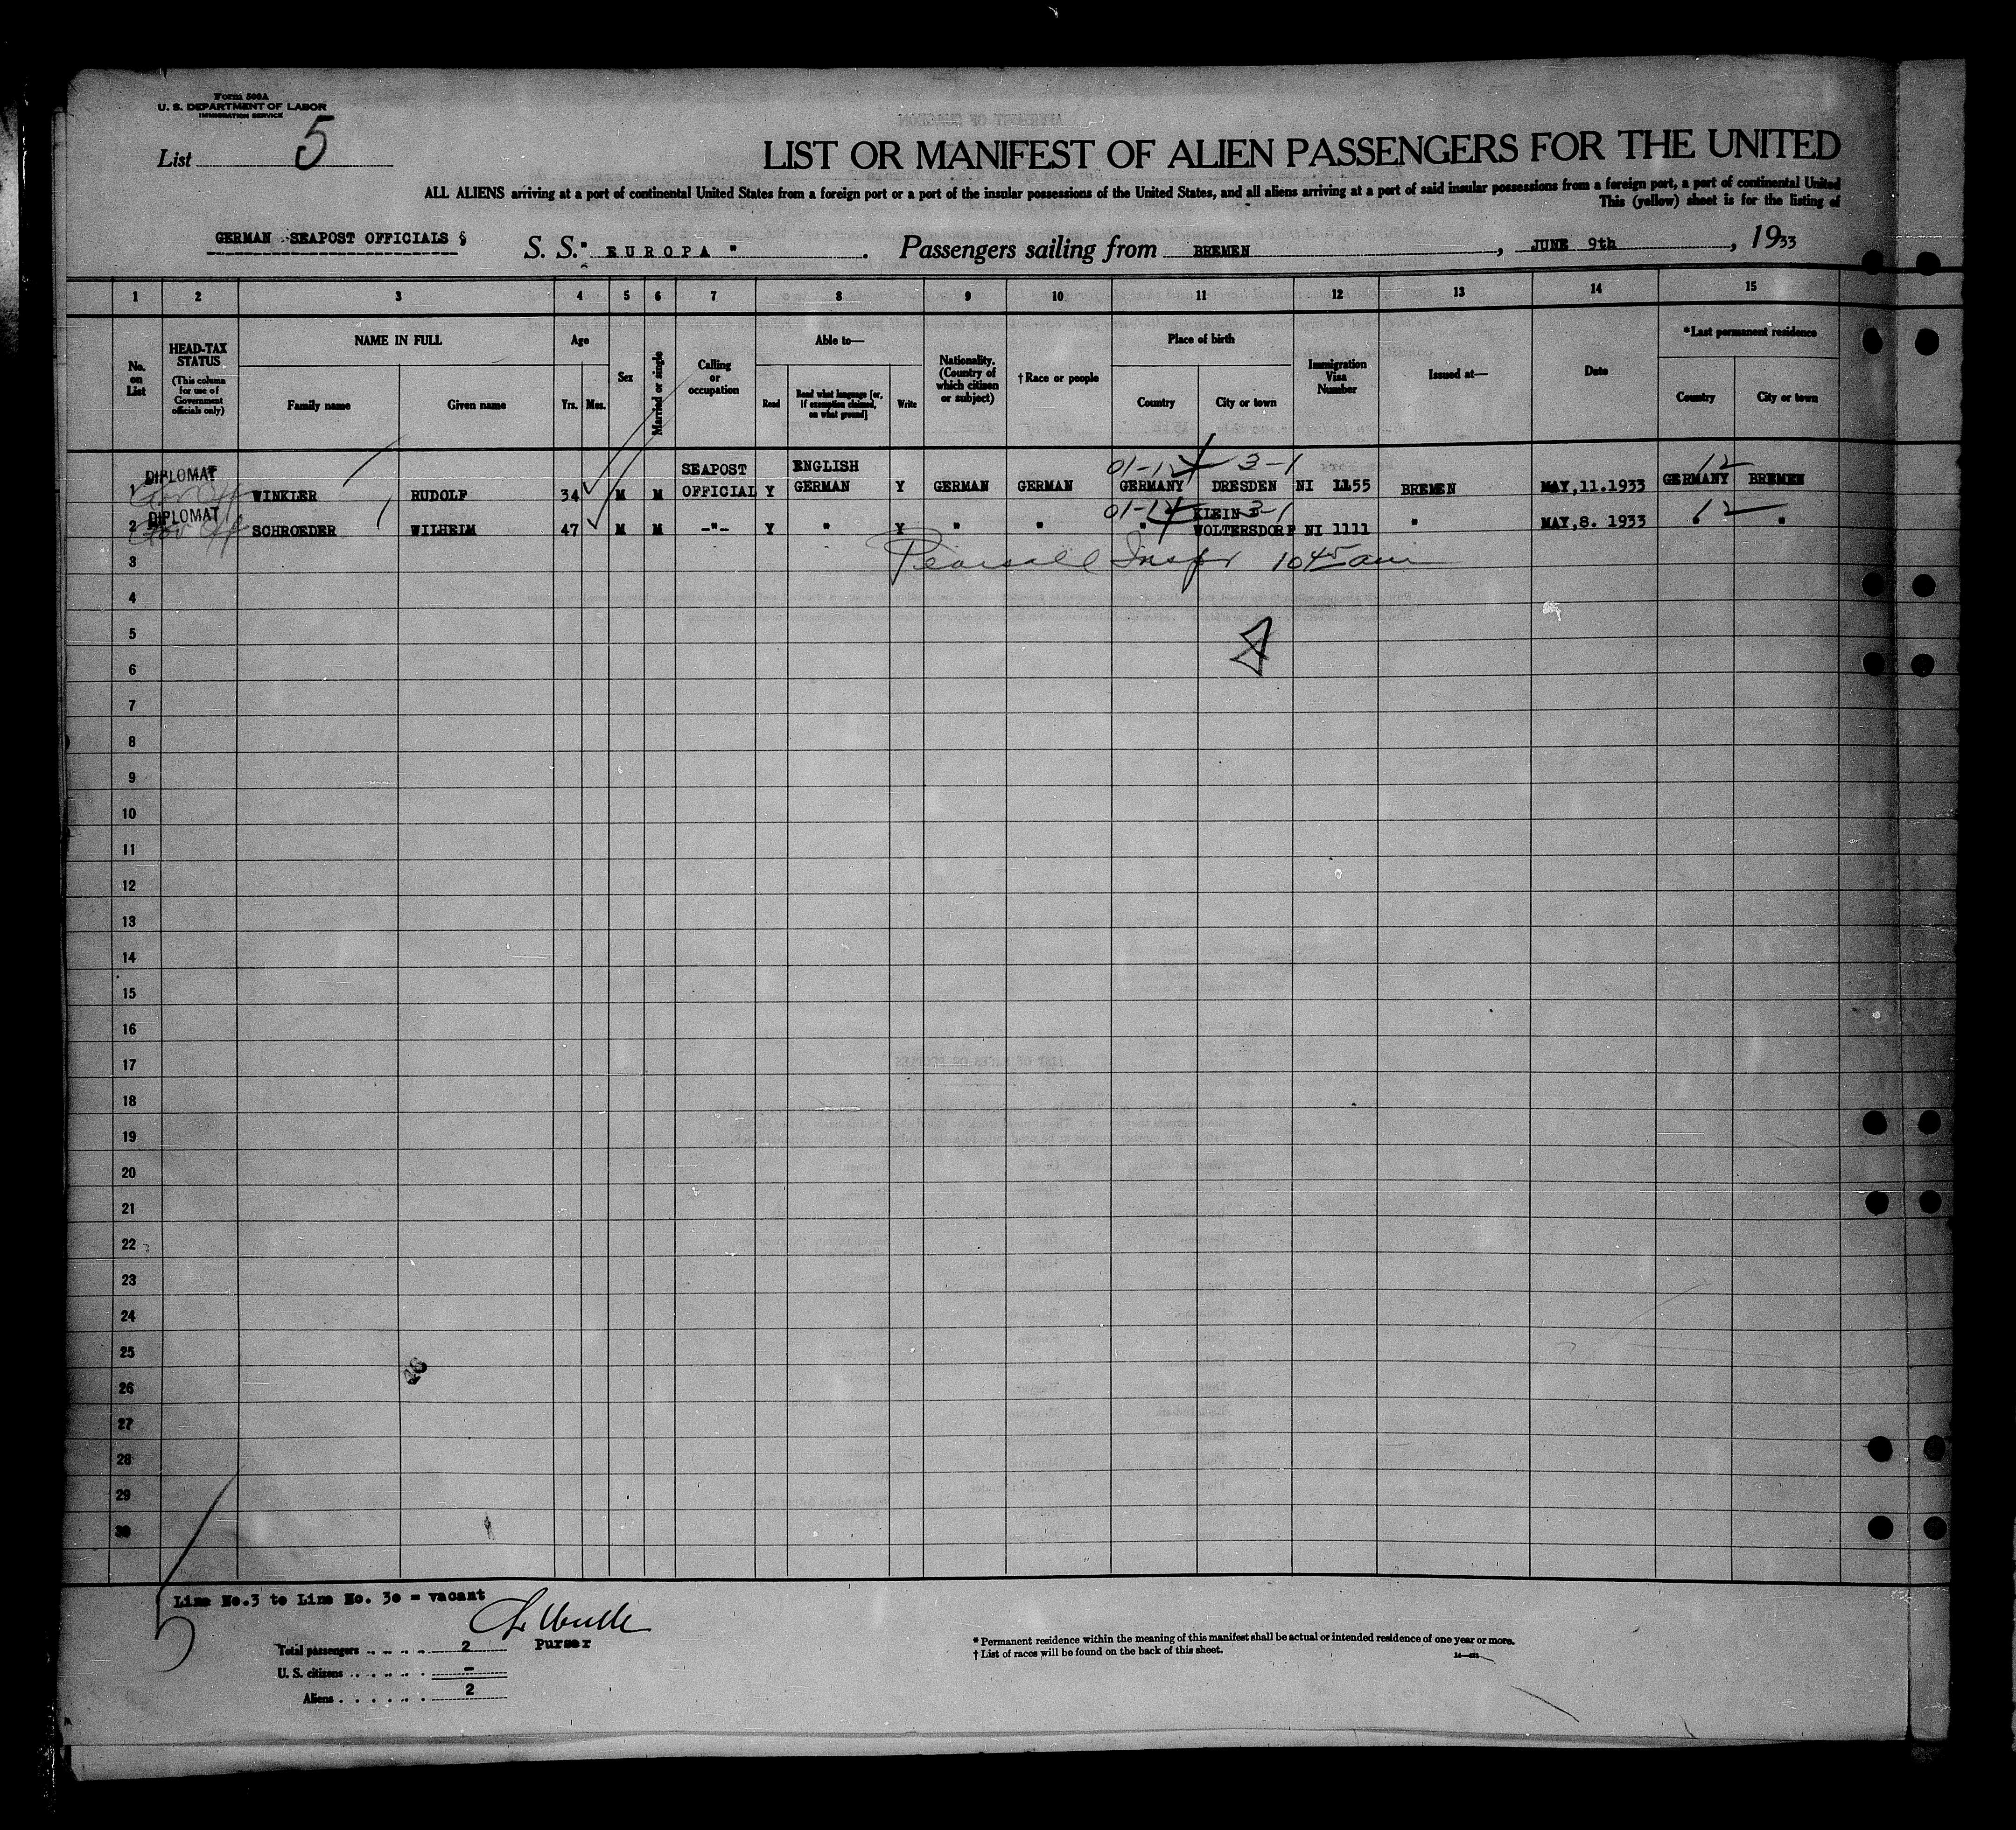 Form 500A
U. S. DEPARTMENT OF LABOR
IMMIGRATION SERVICE
List 5
LIST OR MANIFEST OF ALIEN PASSENGERS FOR THE UNITED
ALL ALIENS arriving at a port of continental United States from a foreign port or a port of the insular possessions of the United States, and all aliens arriving at a port of said insular possessions from a foreign port, a port of continental United
This (yellow) sheet is for the listing of
GERMAN SEAPOST OFFICIALS §
S. S. " EUROPA " . Passengers sailing from BREMEN , JUNE 9th , 1933
1 2 3 4 5 6 7 8 9 10 11 12 13 14 15
No. on List
HEAD-TAX STATUS
(This column for use of Government officials only)
NAME IN FULL
Family name Given name
Age
Yrs. Mos.
Sex
Married or single
Calling or occupation
Able to—
Read
Read what language [or, if exemption claimed, on what ground]
Write
Nationality. (Country of which citizen or subject)
† Race or people
Place of birth
Country City or town
Immigration Visa Number
Issued at—
Date
* Last permanent residence
Country City or town
DIPLOMAT SEAPOST ENGLISH 01-12 3-1 12
1 WINKLER RUDOLF 34 M M OFFICIAL Y GERMAN Y GERMAN GERMAN GERMANY DRESDEN NI 1155 BREMEN MAY,11.1933 GERMANY BREMEN
DIPLOMAT 01-12 KLEIN 3-1 12
2 SCHROEDER WILHELM 47 M M -"- Y " Y " " " WOLTERSDORF NI 1111 " MAY,8. 1933 " "
3 Pearsall Inspr 10 45 am
4
5
6
7
8
9
10
11
12
13
14
15
16
17
18
19
20
21
22
23
24
25
26
27
28
29
30
Line No.3 to Line No. 30 = vacant
Purser
Total passengers 2
U. S. citizens -
Aliens 2
* Permanent residence within the meaning of this manifest shall be actual or intended residence of one year or more.
† List of races will be found on the back of this sheet.